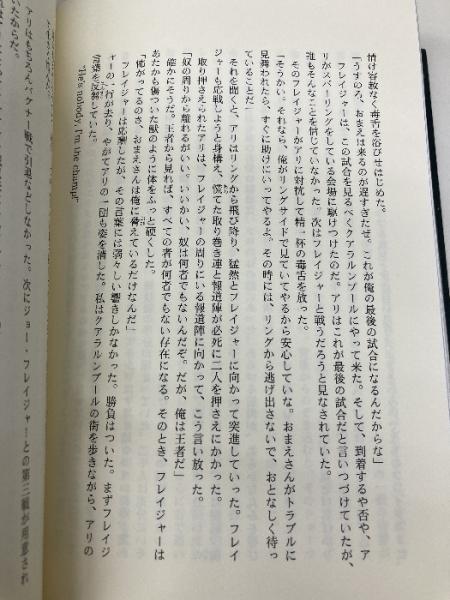 情け容赦なく毒舌を浴びせはじめた。
「うすのろ、おまえは来るのが遅すぎたぜ。これが俺の最後の試合になるんだからな」
フレイジャーは、この試合を見るべくクアラルンプールにやって来た。そして、到着するや否や、ア
リがスパーリングをしている会場に駆けつけたのだ。アリはこれが最後の試合だと言いつづけていたが、
誰もそんなことを信じていなかった。次はフレイジャーと戦うだろうと見なされていた。
そのフレイジャーがアリに対抗して精一杯の毒舌を放った。
「そうかい。それなら、俺がリングサイドで見ていてやるから安心していな。おまえさんがトラブルに
見舞われたら、すぐに助けにいってやるぜ。その時には、リングから逃げ出さないで、おとなしく待っ
ていることだ」
それを聞くと、アリはリングから飛び降り、猛然とフレイジャーに向かって突進していった。フレイ
ジャーも応戦しようと身構え、慌てた取り巻き連と報道陣が必死に二人を押さえにかかった。
取り押さえられたアリは、フレイジャーの周りにいる報道陣に向かって、こう言い放った。
「奴の周りから離れるがいい。いいかい、奴は何者でもないんだぞ。だが、俺は王者だ」
確かにそうだ。王者から見れば、すべての者が何者でもない存在になる。そのとき、フレイジャーは
あたかも傷ついた獣のように体をふっと硬くした。
「怖がってるのさ、おまえさんは俺に脅えているだけなんだ」
フレイジャーは応酬したが、その言葉には弱々しい響きしかなかった。勝負はついた。まずフレイジ
ャーの一行が去り、やがてアリの一団も姿を消した。私はクアラルンプールの街を歩きながら、アリの
言葉を反芻していた。
"He's nobody, I'm the champ!"
アリはもちろんバグナー戦で引退などしなかった。次にジョー・フレイジャーとの第三戦が用意され